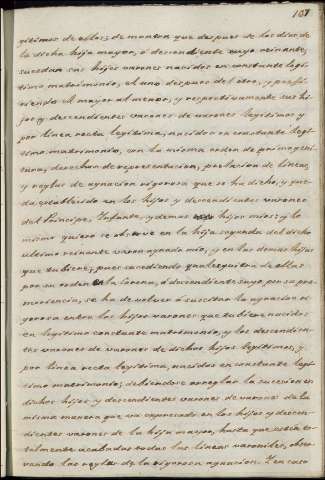 107
gitimos de ellas; de manera que despues de los dias de
la dicha hija mayor, ó descendiente suyo reinante,
sucedan sus hijos varones nacidos en constante legi-
timo matrimonio, el uno despues del otro, y prefi-
riendo el mayor al menor, y respectivamente sus hi-
jos y descendientes varones de varones legitimos y
por linea recta legitima, nacidos en constante legi-
timo matrimonio, con la misma orden de primogeni-
tura, derechos de representacion, prelacion de lineas,
y reglas de agnacion rigorosa que se ha dicho, y que-
da establecido en los hijos y descendientes varones
del Principe, Infante, y demas hijos mios: y lo
mismo quiero se observe en la hija segunda del dicho
ultimo reinante varon agnado mio, y en las demas hijas
que tubiere; pues sucediendo qualesquiera de ellas
por su orden en la Corona, ó descendiente suyo por su pre-
moriencia, se ha de volver á suscitar la agnacion ri-
gorosa entre los hijos varones que tubiere nacidos
en legitimo constante matrimonio, y los descendien-
tes varones de varones de dichos hijos legitimos, y
por linea recta legitima, nacidos en constante legi-
timo matrimonio; debiendose arreglar la sucesion en
dichos hijos y descendientes varones de varones de la
misma manera que va expresado en los hijos y descen-
dientes varones de la hija mayor, hasta que esten to-
talmente acabadas todas las lineas varoniles, obser-
vando las reglas de la rigorosa agnacion. Y en caso